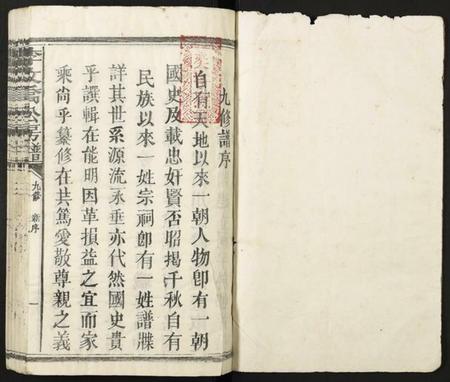 九修譜序
自有天地以來一朝人物卽有一朝
國史及載忠奸賢否昭揭千秋自有
民族以來一姓宗祠卽有一姓譜牒
詳其世系源流永垂亦代然國史貴
乎譔輯在能明因革損益之宜而家
乘尚乎纂修在共篤愛敬尊親之義
九修 新序
一